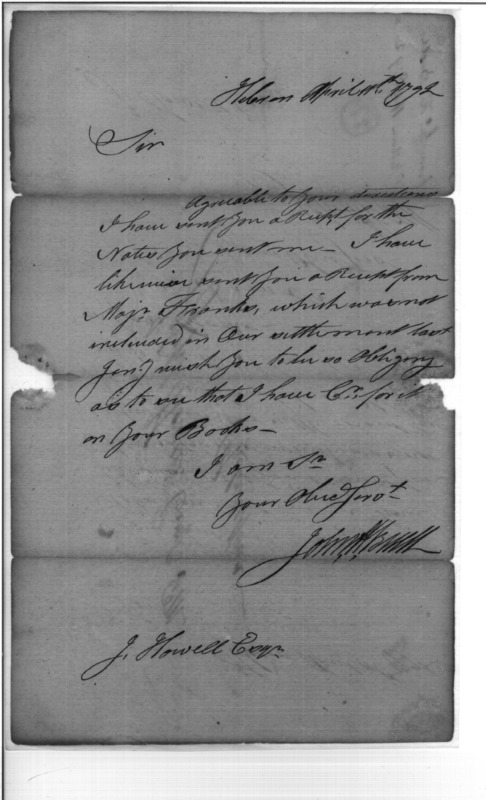 Hebron April 11th 1792
Sir
Agreeable to Your directions
I have sent You a Rect for the
Notes You sent me — I have
likewise sent You a Receipt from
Majr Franks, which was not
included in Our settlement last
Jany I wish You to be so Obliging
as to see that I have Cr. for it
on Your Books —
I am Sr
Your Obed Servt
John H Buell
J. Howell Esqr